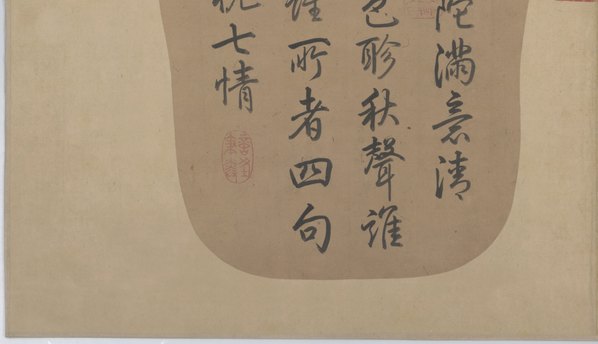 陀滿意清
色聆秋聲誰
所者四句
七情